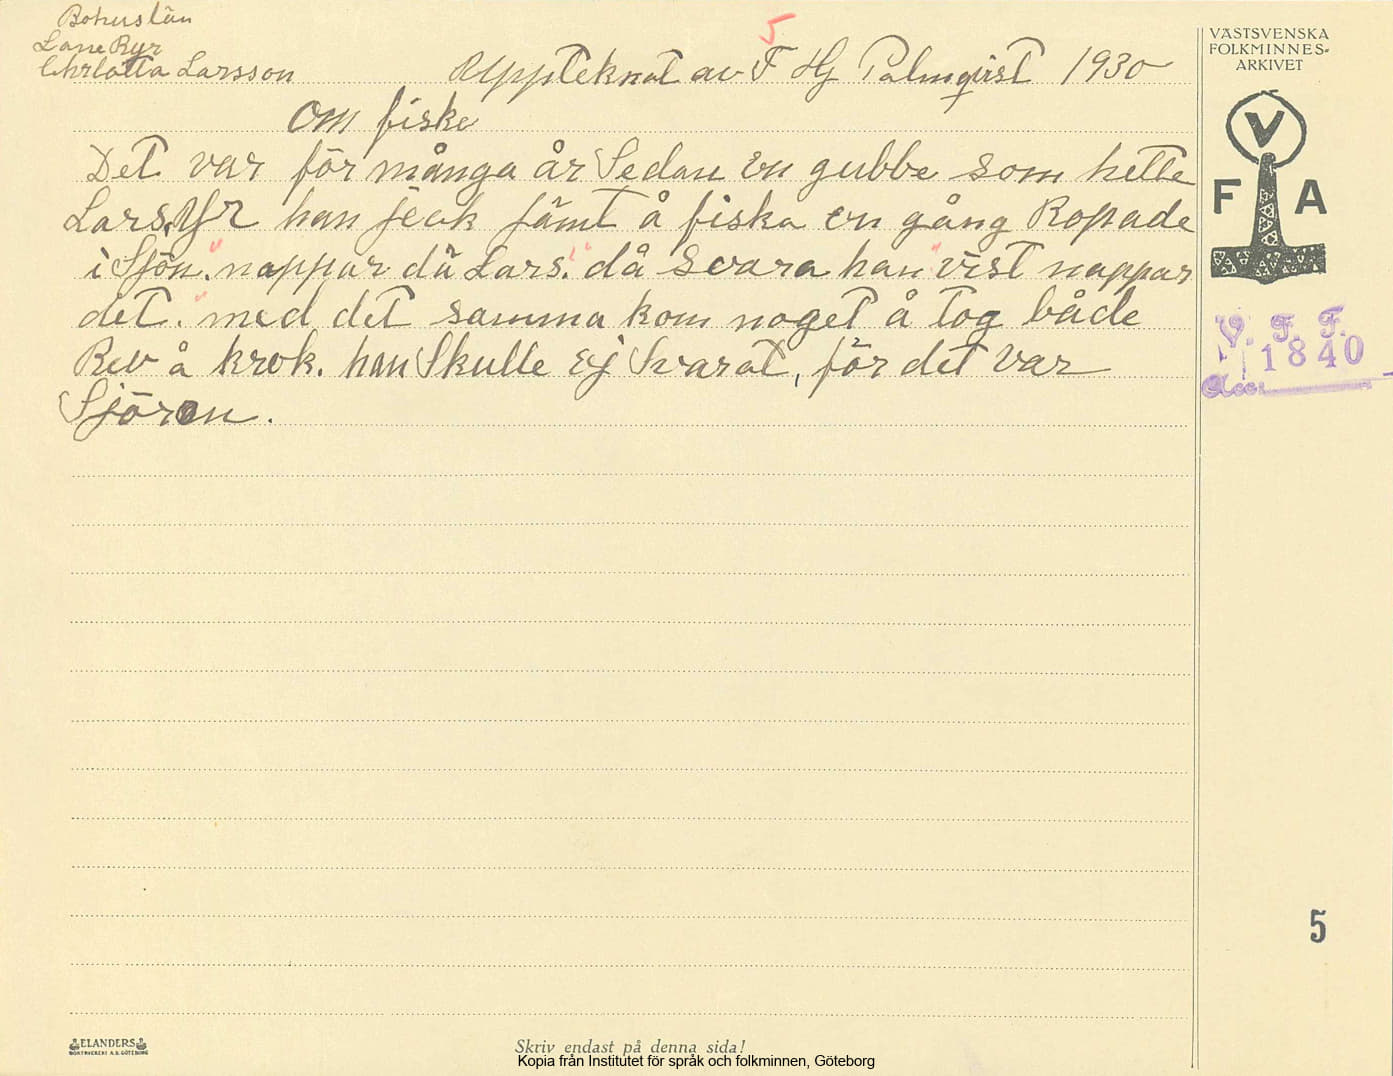 Bohuslän
Lane Ryr
Chrlotta Larsson
Uppteknat av F Hj Palmqvist 1930
5
VÄSTSVENSKA
FOLKMINNES-
ARKIVET
V
F A
Om fiske
Det var för många år Sedan en gubbe som hette
Lars. Yr han jeck jämt å fiska en gång Ropade
i Sjön. "nappar dä Lars." då svara han "vist nappar
det." med det samma kom noget å tog både
Rev å krok. han Skulle ej Svarat, för det var
Sjören.
V. F. F.
1840
Acc.
5
ELANDERS
BOKTRYCKERI A.B. GÖTEBORG
Skriv endast på denna sida!
Kopia från Institutet för språk och folkminnen, Göteborg